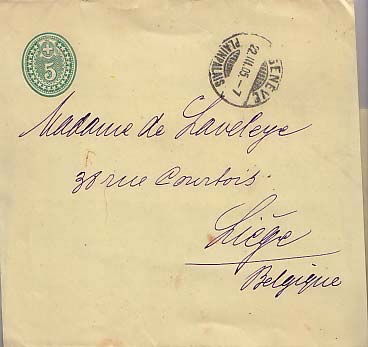 5
GENÈVE
22.III.05.-7
PLAINPALAIS
Madame de Laveleye
38 rue Courtois.
Liège
Belgique